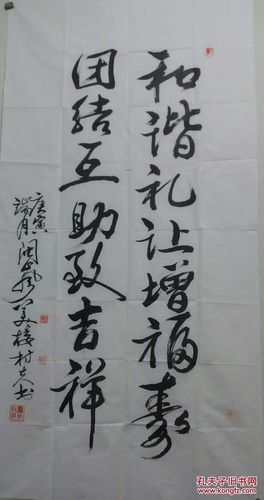 和谐礼让增福寿
团结互助致吉祥
庚寅
端月
孔夫子旧书网